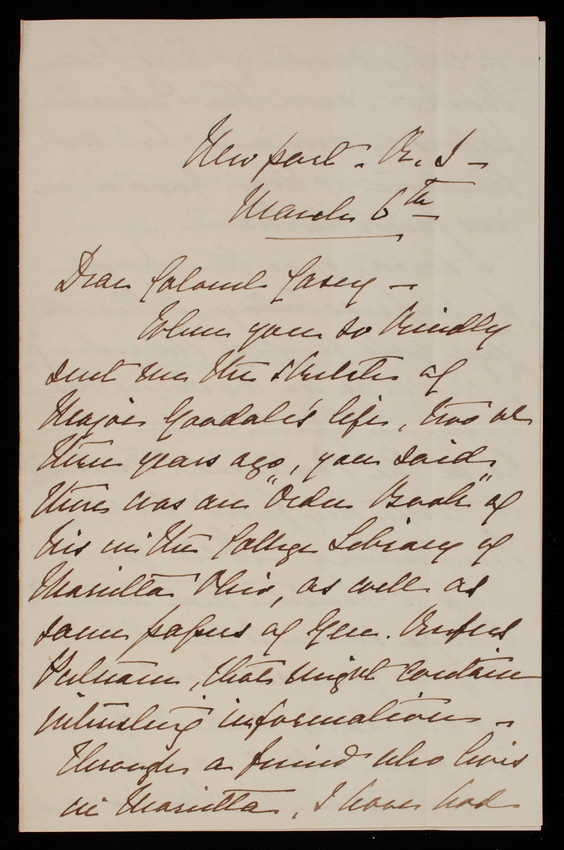 Newport. R. I —
March 6th
Dear Colonel Casey —
When you so kindly
sent me the sketch of
Major Goodale's life, two or
three years ago, you said
there was an "Order Book" of
his in the College Library of
Marietta Ohio, as well as
some papers of Gen. Rufus
Putnam, that might contain
interesting information —
through a friend who lives
in Marietta, I have had